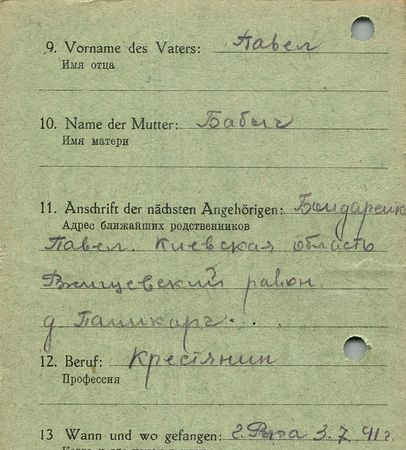 9. Vorname des Vaters: Павел
Имя отца
10. Name der Mutter: Бабыч
Имя матери
11. Anschrift der nächsten Angehörigen: Бондаренко
Адрес ближайших родственников
Павел. Киевская область
Ржищевский район.
д
12. Beruf: Крестянин
Профессия
13 Wann und wo gefangen: г. Рига 3.7.41г.